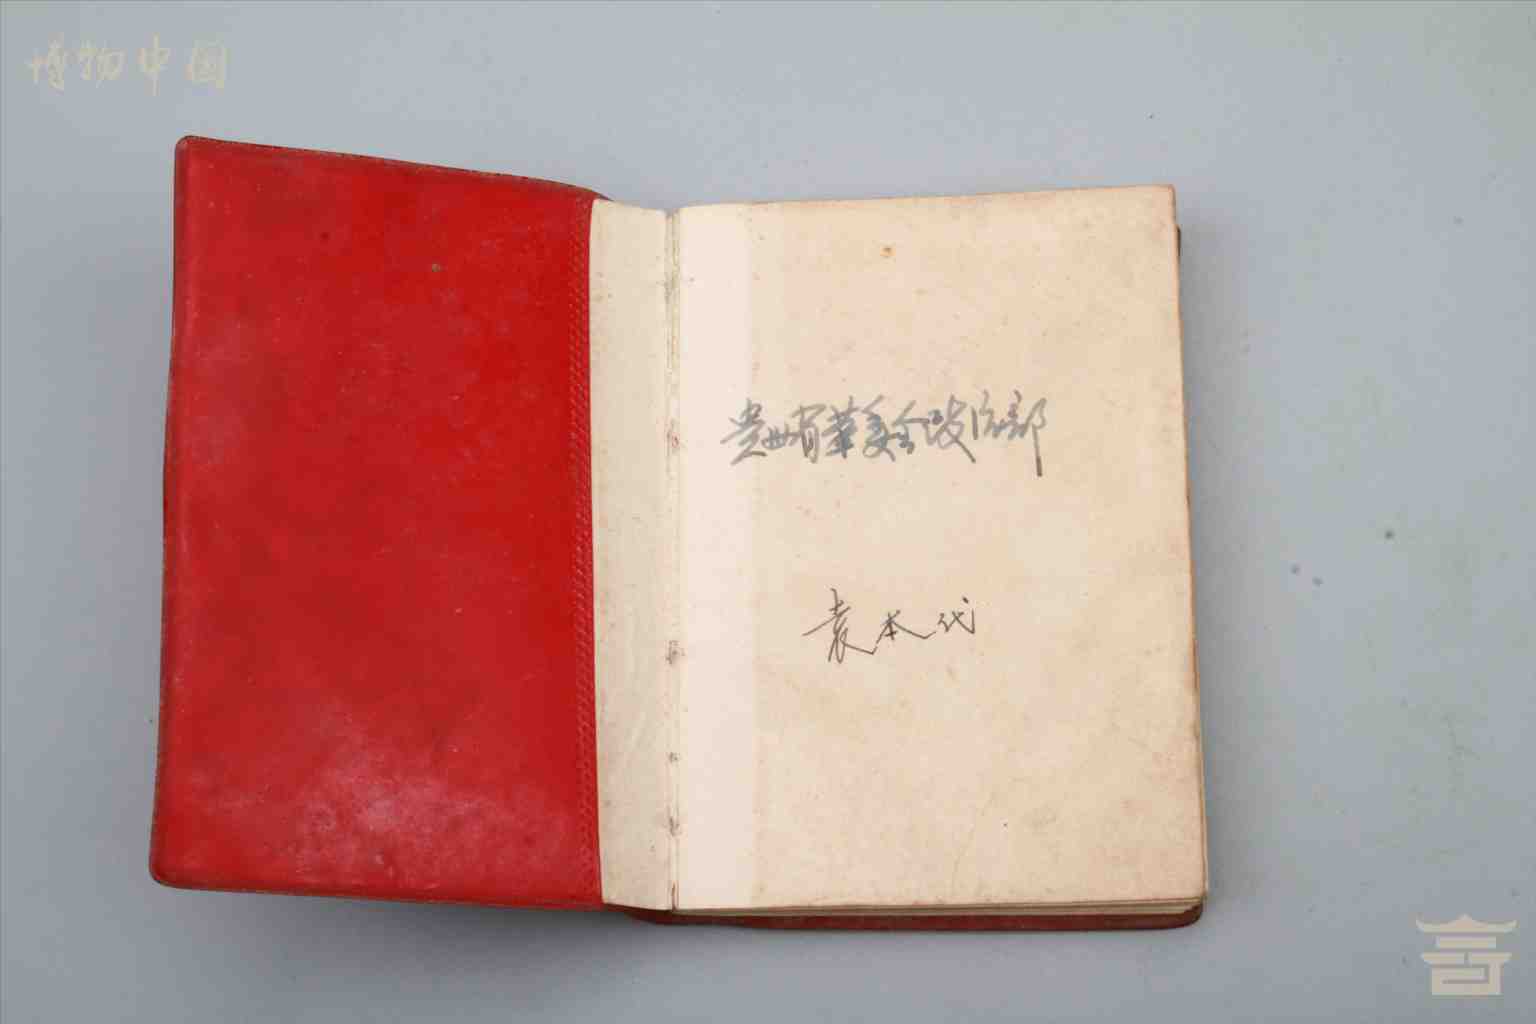 博物中国
贵州省革委会政治部
袁本代